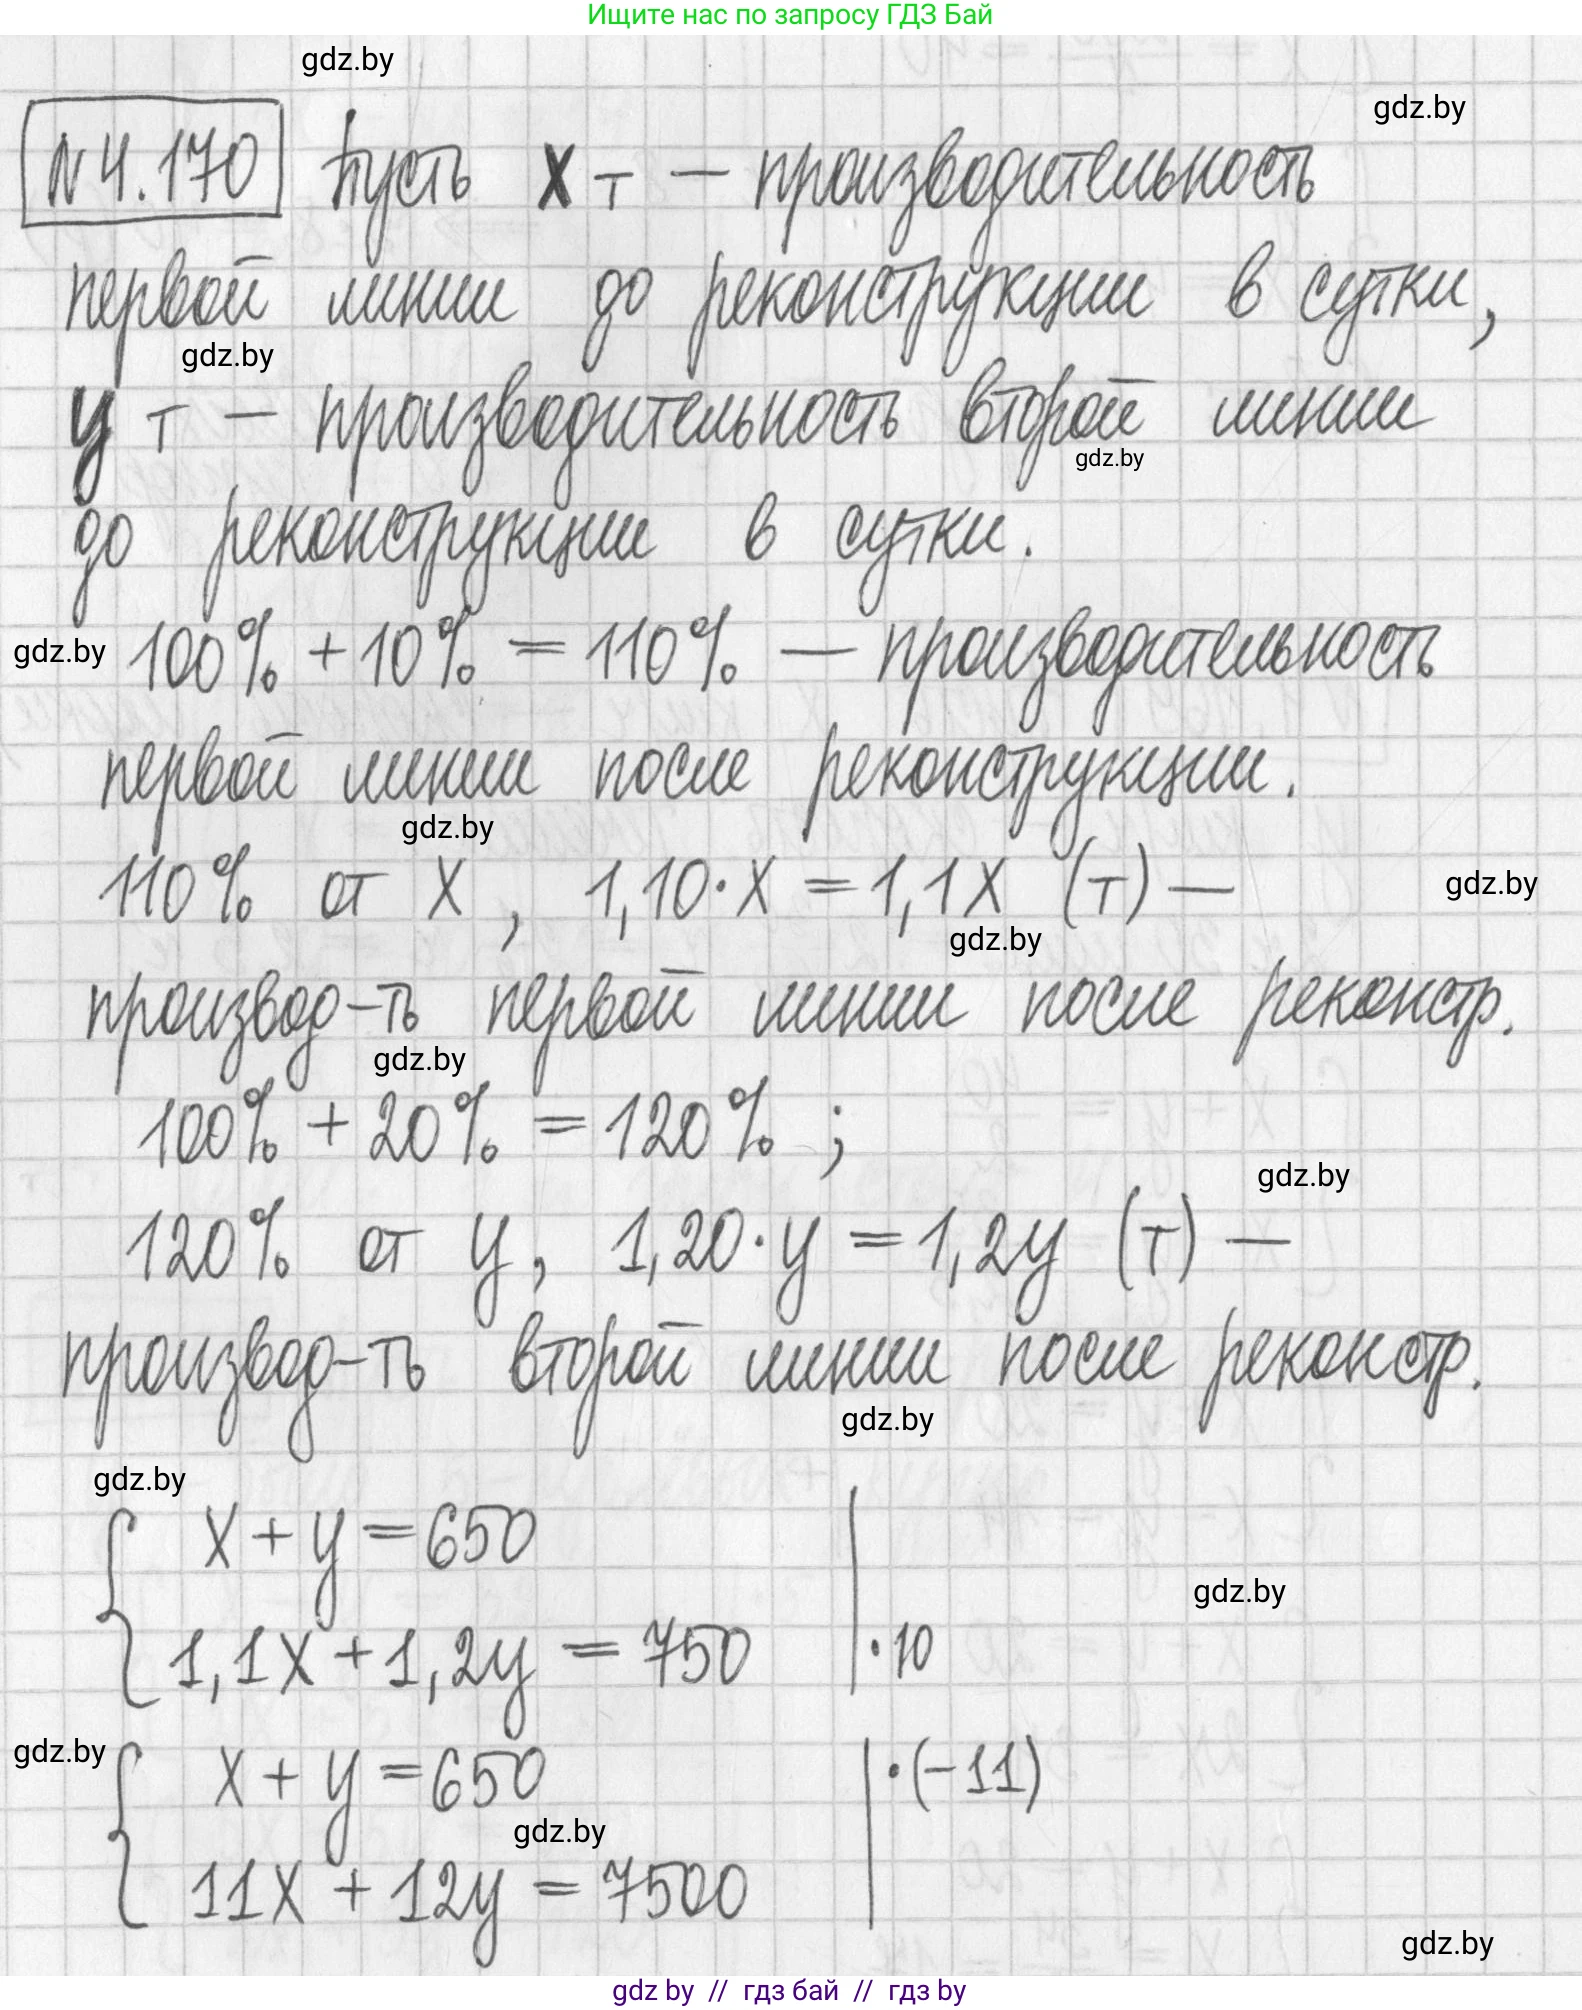 Ищите нас по запросу ГДЗ Бай
gdz.by
gdz.by
N 4.170 Пусть x т — производительность
первой линии до реконструкции в сутки,
gdz.by
y т — производительность второй линии
gdz.by
до реконструкции в сутки.
gdz.by 100% + 10% = 110% — производительность
первой линии после реконструкции.
gdz.by
110% от x, 1,10·x = 1,1x (т) —
gdz.by
gdz.by
производ-ть первой линии после реконстр.
gdz.by
100% + 20% = 120% ;
gdz.by
120% от y, 1,20·y = 1,2y (т) —
производ-ть второй линии после реконстр.
gdz.by
gdz.by
{ x + y = 650 |
gdz.by
1,1x + 1,2y = 750 | ·10
gdz.by
{ x + y = 650 | ·(-11)
gdz.by
11x + 12y = 7500 |
gdz.by
gdz by // гдз бай // гдз by